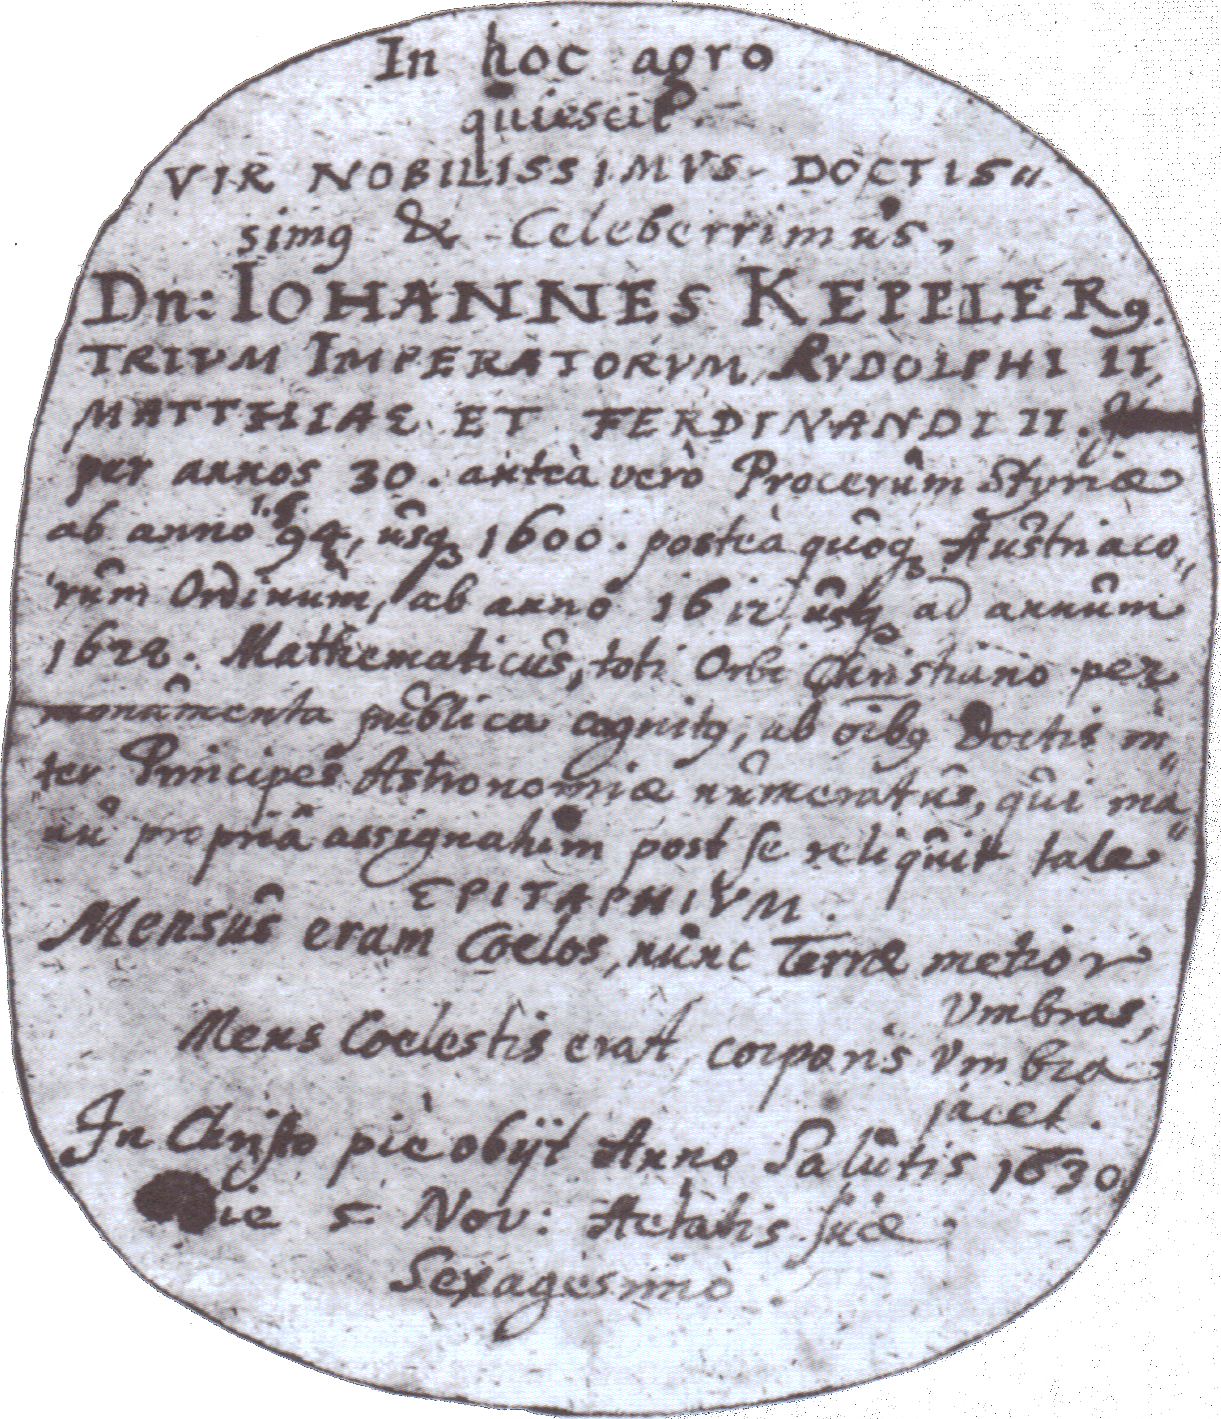 In hoc agro
quiescit
VIR NOBILISSIMVS DOCTIS„
simꝯ & Celeberrimus,
Dn: IOHANNES KEPPLERꝯ.
TRIVM IMPERATORVM RVDOLPHI II,
MATTHIAE ET FERDINANDI II.
per annos 30. anteà verò Procerum Styriæ
ab anno 1594, usqꝫ 1600. posteà quoqꝫ Austriaco„
rum Ordinum, ab anno 1612 usqꝫ ad annum
1628. Mathematicus, toti Orbi Christiano per
monumenta publica cognitꝯ, ab oībꝯ Doctis in„
ter Principes Astronomiæ numeratus, qui ma„
nu propriâ assignatum post se reliquit tale
EPITAPHIVM.
Mensus eram Coelos, nunc Terræ metior
Vmbras,
Mens Coelestis erat, corporis Vmbra
jacet.
In Christo piè obijt Anno Salutis 1630,
die 5 Nov: Aetatis suæ
Sexagesimo